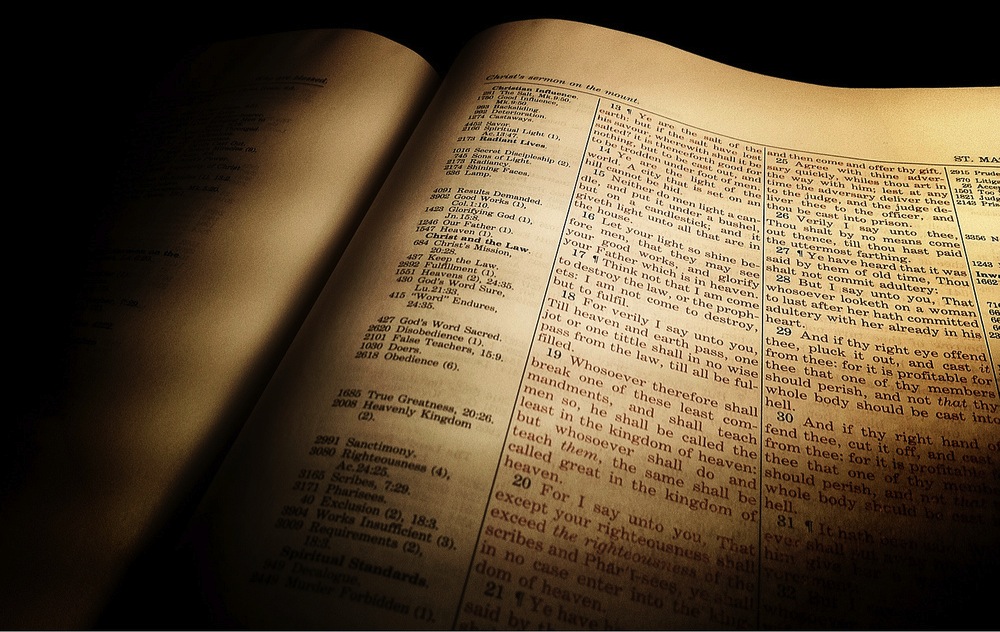 Christ's sermon on the mount.
Christian Influence.
Mk.9:50.
1760 Good Influence,
Mk.9:50.
993 Backsliding.
992 Deterioration.
1274 Castaways.
4452 Savor.
2166 Spiritual Light (1),
Ac.13:47.
2173 Radiant Lives.
1016 Secret Discipleship (2).
745 Sons of Light.
2173 Radiancy.
2174 Shining Faces.
636 Lamp.
4091 Results Demanded.
3902 Good Works (1),
Col.1:10.
1423 Glorifying God (1),
Jn.15:8.
1246 Our Father (1).
1547 Heaven (1).
Christ and the Law
684 Christ's Mission,
20:28.
437 Keep the Law.
2892 Fulfillment (1).
1551 Heavens (2), 24:35.
430 God's Word Sure,
Lu.21:33.
415 "Word" Endures,
24:35.
427 God's Word Sacred.
2620 Disobedience (1).
2101 False Teachers, 15:9.
1030 Doers.
2618 Obedience (6).
1685 True Greatness, 20:26.
2008 Heavenly Kingdom
(2).
2991 Sanctimony.
3080 Righteousness (4),
Ac.24:25.
3165 Scribes, 7:29.
3171 Pharisees.
40 Exclusion (2), 18:3.
3904 Works Insufficient (3).
Requirements (2),
18:3.
Spiritual Standards.
Decalogue.
Murder Forbidden (1).
13 ¶ Ye are the salt of the
earth: but if the salt have lost
his savour, wherewith shall it be
salted? it is thenceforth good for
nothing, but to be cast out, and
to be trodden under foot of men.
14 Ye are the light of the
world. A city that is set on an
hill cannot be hid.
15 Neither do men light a can-
dle, and put it under a bushel,
but on a candlestick; and it
giveth light unto all that are in
the house.
16 Let your light so shine be-
fore men, that they may see
your good works, and glorify
your Father which is in heaven.
17 ¶ Think not that I am come
to destroy the law, or the proph-
ets: I am not come to destroy,
but to fulfil.
18 For verily I say unto you,
Till heaven and earth pass, one
jot or one tittle shall in no wise
pass from the law, till all be ful-
filled.
19 Whosoever therefore shall
break one of these least com-
mandments, and shall teach
men so, he shall be called the
least in the kingdom of heaven:
but whosoever shall do and
teach them, the same shall be
called great in the kingdom of
heaven.
20 For I say unto you, That
except your righteousness shall
exceed the righteousness of the
scribes and Phâr'i-sees, ye shall
in no case enter into the king-
dom of heaven.
21 ¶ Ye have
said by them
and then come and offer thy gift.
25 Agree with thine adver-
sary quickly, whiles thou art in
the way with him; lest at any
time the adversary deliver thee
to the judge, and the judge de-
liver thee to the officer, and
thou be cast into prison.
26 Verily I say unto thee,
Thou shalt by no means come
out thence, till thou hast paid
the uttermost farthing.
27 ¶ Ye have heard that it was
said by them of old time, Thou
shalt not commit adultery:
28 But I say unto you, That
whosoever looketh on a woman
to lust after her hath committed
adultery with her already in his
heart.
29 And if thy right eye offend
thee, pluck it out, and cast it
from thee: for it is profitable for
thee that one of thy members
should perish, and not that thy
whole body should be cast into
hell.
30 And if thy right hand of-
fend thee, cut it off, and cast
from thee: for it is profitable
thee that one of thy members
should perish, and not that
whole body should be cast
hell.
31 ¶ It hath been said,
ever shall put
him give
32 But I
ST. MA
2915 Prud
870 Litiga
26 Acce
1501 Too
1821 Judg
2145 Pris
3356
1243